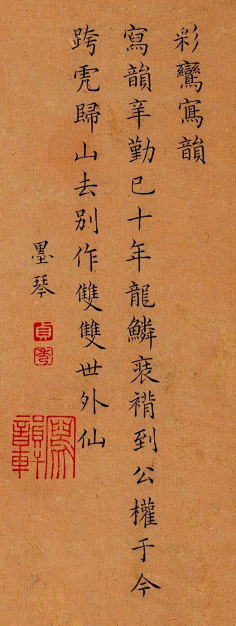 彩鸞寫韻
寫韻辛勤已十年龍鱗裘褙到公權于今
跨虎歸山去別作雙雙世外仙
墨琴